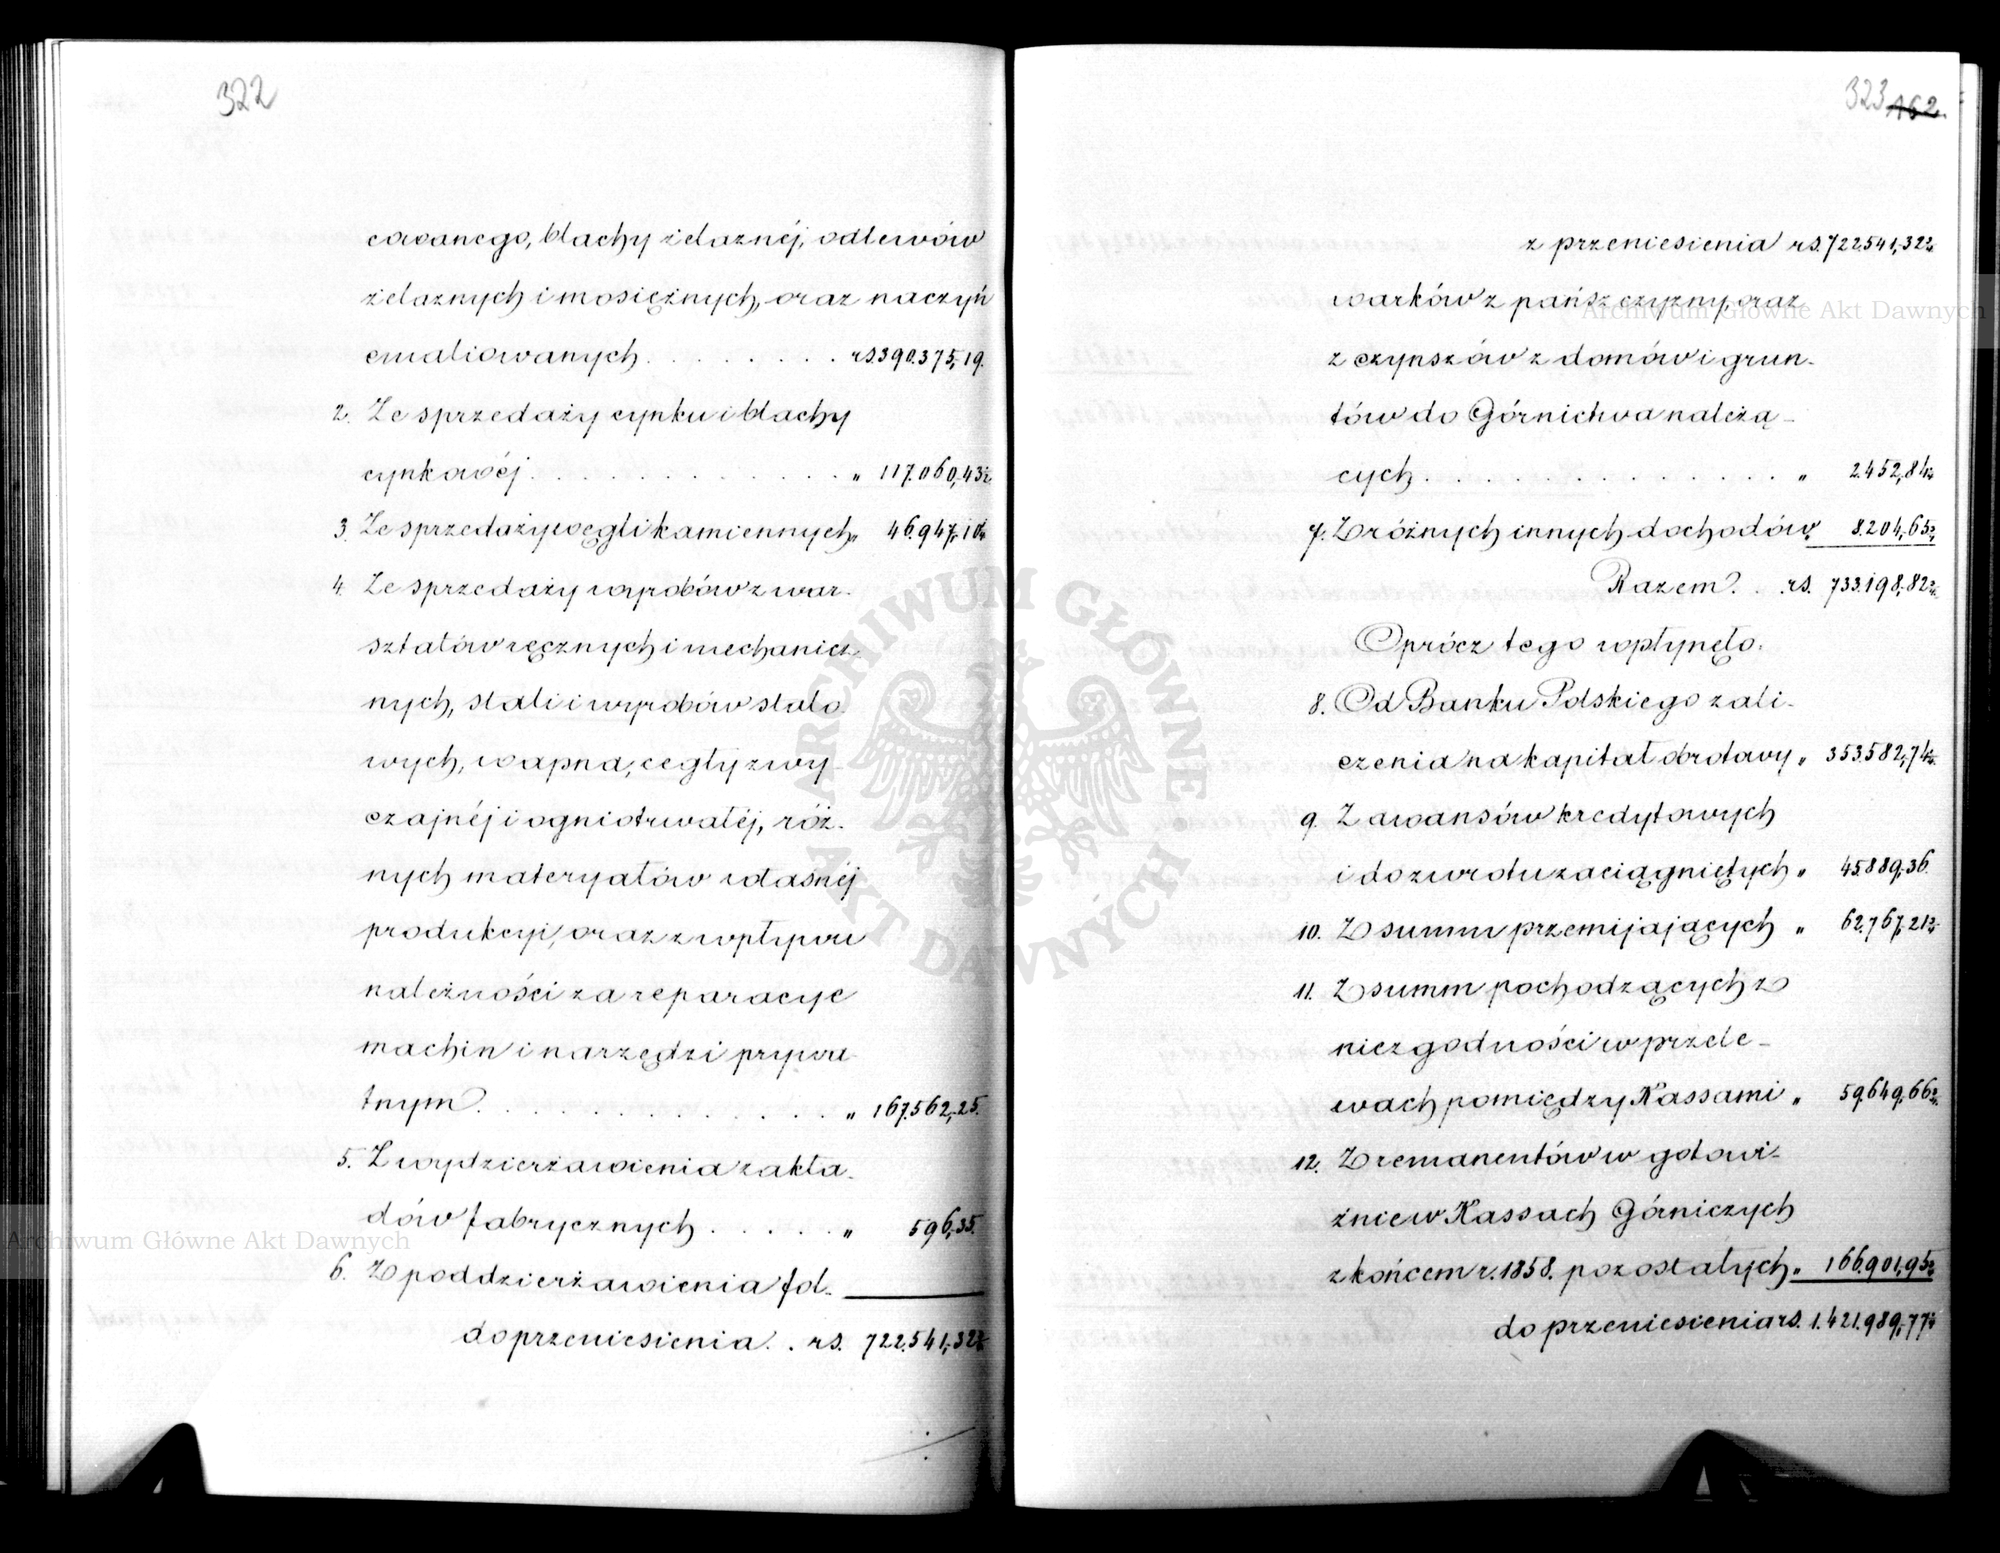 322
cowanego, blachy żelaznéj, odlewów
żelaznych i mosiężnych, oraz naczyń
emaliowanych . . . . . . . . rs. 390.375,19.
2. Ze sprzedaży cynku i blachy
cynkowéj . . . . . . . . . . . . „ 117.060,43½
3. Ze sprzedaży węgli kamiennych „ 46.947,10
4. Ze sprzedaży wyrobów z war-
sztatów ręcznych i mechanicz-
nych, stali i wyrobów stalo-
wych, wapna, cegły zwy-
czajnéj i ogniotrwałéj, róż-
nych materyałów własnéj
produkcyi, oraz z wpływu
należności za reparacye
machin i narzędzi prywa-
tnym . . . . . . . . . . . . „ 167.562,25.
5. Z wydzierżawienia zakła-
dów fabrycznych . . . . . „ 596,35.
6. Z poddzierżawienia fol-
do przeniesienia . . rs. 722.541,32½
323 162.
z przeniesienia rs. 722.541,32½
warków z pańszczyzny, oraz
z czynszów z domów i grun-
tów do Górnictwa należą-
cych . . . . . . . . . . . . . „ 2.452,84
7. Z różnych innych dochodów „ 8.204,65½
Razem . . rs. 733.198,82½
Oprócz tego wpłynęło:
8. Od Banku Polskiego zali-
czenia na kapitał obrotowy „ 353.582,74
9. Z awansów kredytowych
i do zwrotu zaciągniętych „ 45.889,36.
10. Z summ przemijających „ 62.767,21½
11. Z summ pochodzących z
niezgodności w przele-
wach pomiędzy Kassami „ 59.649,66½
12. Z remanentów w gotowi-
źnie w Kassach Górniczych
z końcem r. 1858. pozostałych „ 166.901,95½
do przeniesienia rs. 1.421.989,77
Archiwum Główne Akt Dawnych
ARCHIWUM GŁÓWNE
AKT DAWNYCH
Archiwum Główne Akt Dawnych